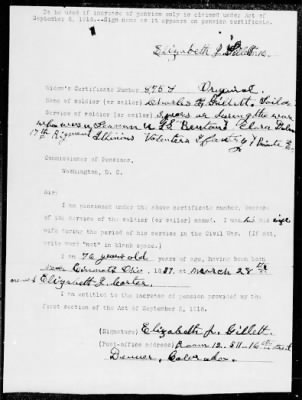 To be used if increase of pension only is claimed under Act of
September 8, 1916.--Sign name as it appears on pension certificate.
Elizabeth J. Gillett
Widow's Certificate Number Original
Name of soldier (or sailor) Charles H. Gillett, Sailor
Service of soldier (or sailor) 3 years or during the war
17th Regiment Illinois Volunteers
Commissioner of Pensions,
Washington, D. C.
Sir:
I am pensioned under the above certificate number, because
of the service of the soldier (or sailor) named. I was his
wife during the period of his service in the Civil War. (If not,
write word "not" in blank space.)
I am 76 years old years of age, having been born
near Cincinnati Ohio March 28th
Elizabeth J. Carter
I am entitled to the increase of pension provided by the
first section of the Act of September 8, 1916.
(Signature) Elizabeth J. Gillett
(Post-office address) Room 12. 511-16th street
Denver, Colorado.